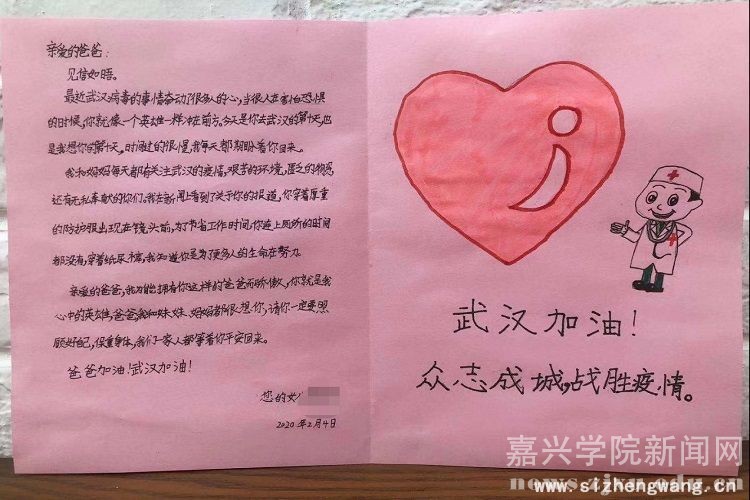 亲爱的爸爸:
见信如晤。
最近武汉病毒的事情牵动了很多人的心,当很人在害怕恐惧
的时候,你就像一个英雄一样冲在前方。今天是你去武汉的第十天,也
是我想你的第十天。时间过的很慢,我每天都期盼着你回来。
我和妈妈每天都有关注武汉的疫情,艰苦的环境,匮乏的物资,
还有无私奉献的你们。我在新闻上看到了关于你的报道,你穿着厚重
的防护服出现在镜头前,为了节省工作时间,你连上厕所的时间
都没有,穿着纸尿裤,我知道你是为了更多人的生命在努力。
亲爱的爸爸,我为能拥有你这样的爸爸而骄傲,你就是我
心中的英雄,爸爸,我和妹妹、妈妈都很想你,请你一定要照
顾好自己,保重身体,我们一家人都等着你平安回来。
爸爸加油!武汉加油!
您的女
2020年2月4日
武汉加油!
众志成城,战胜疫情。
嘉兴学院新闻网
www.sizhengwang.cn